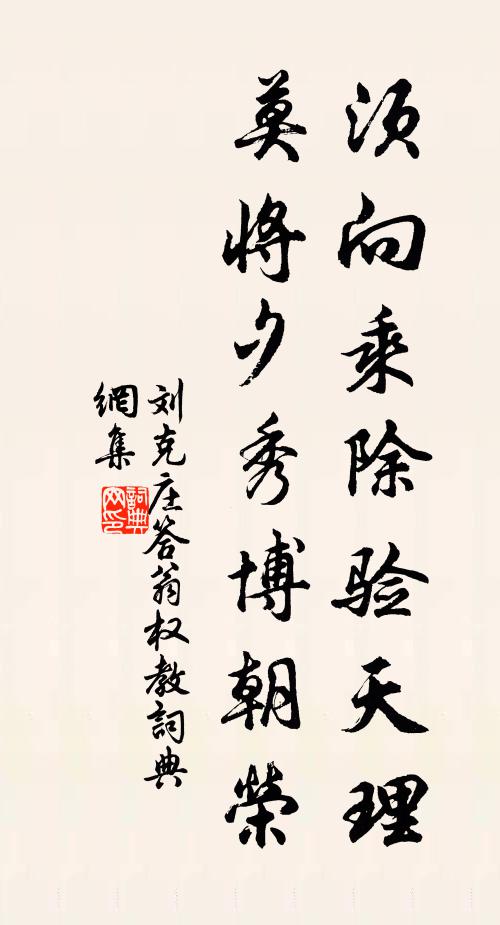 须向乘除验天理
莫将夕秀博朝榮
刘克庄答翁权教詞典
網集
詞典
网印